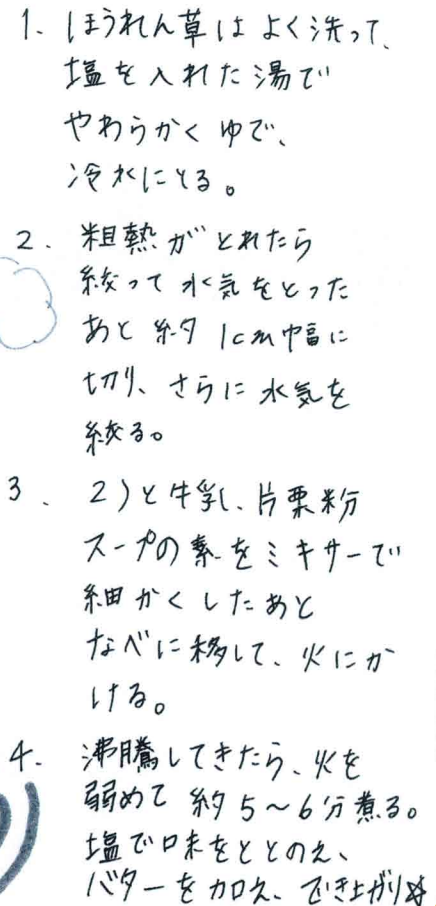 1. ほうれん草は よく洗って、
塩を入れた湯で
やわらかくゆで、
冷水にとる。
2. 粗熱がとれたら
絞って水気をとった
あと 約1cm幅に
切り、さらに水気を
絞る。
3、 2)と牛乳、片栗粉
スープの素をミキサーで
細かくしたあと
なべに移して、火にか
ける。
4. 沸騰してきたら、火を
弱めて 約5〜6分煮る。
塩で味をととのえ、
バターを加え、でき上がり